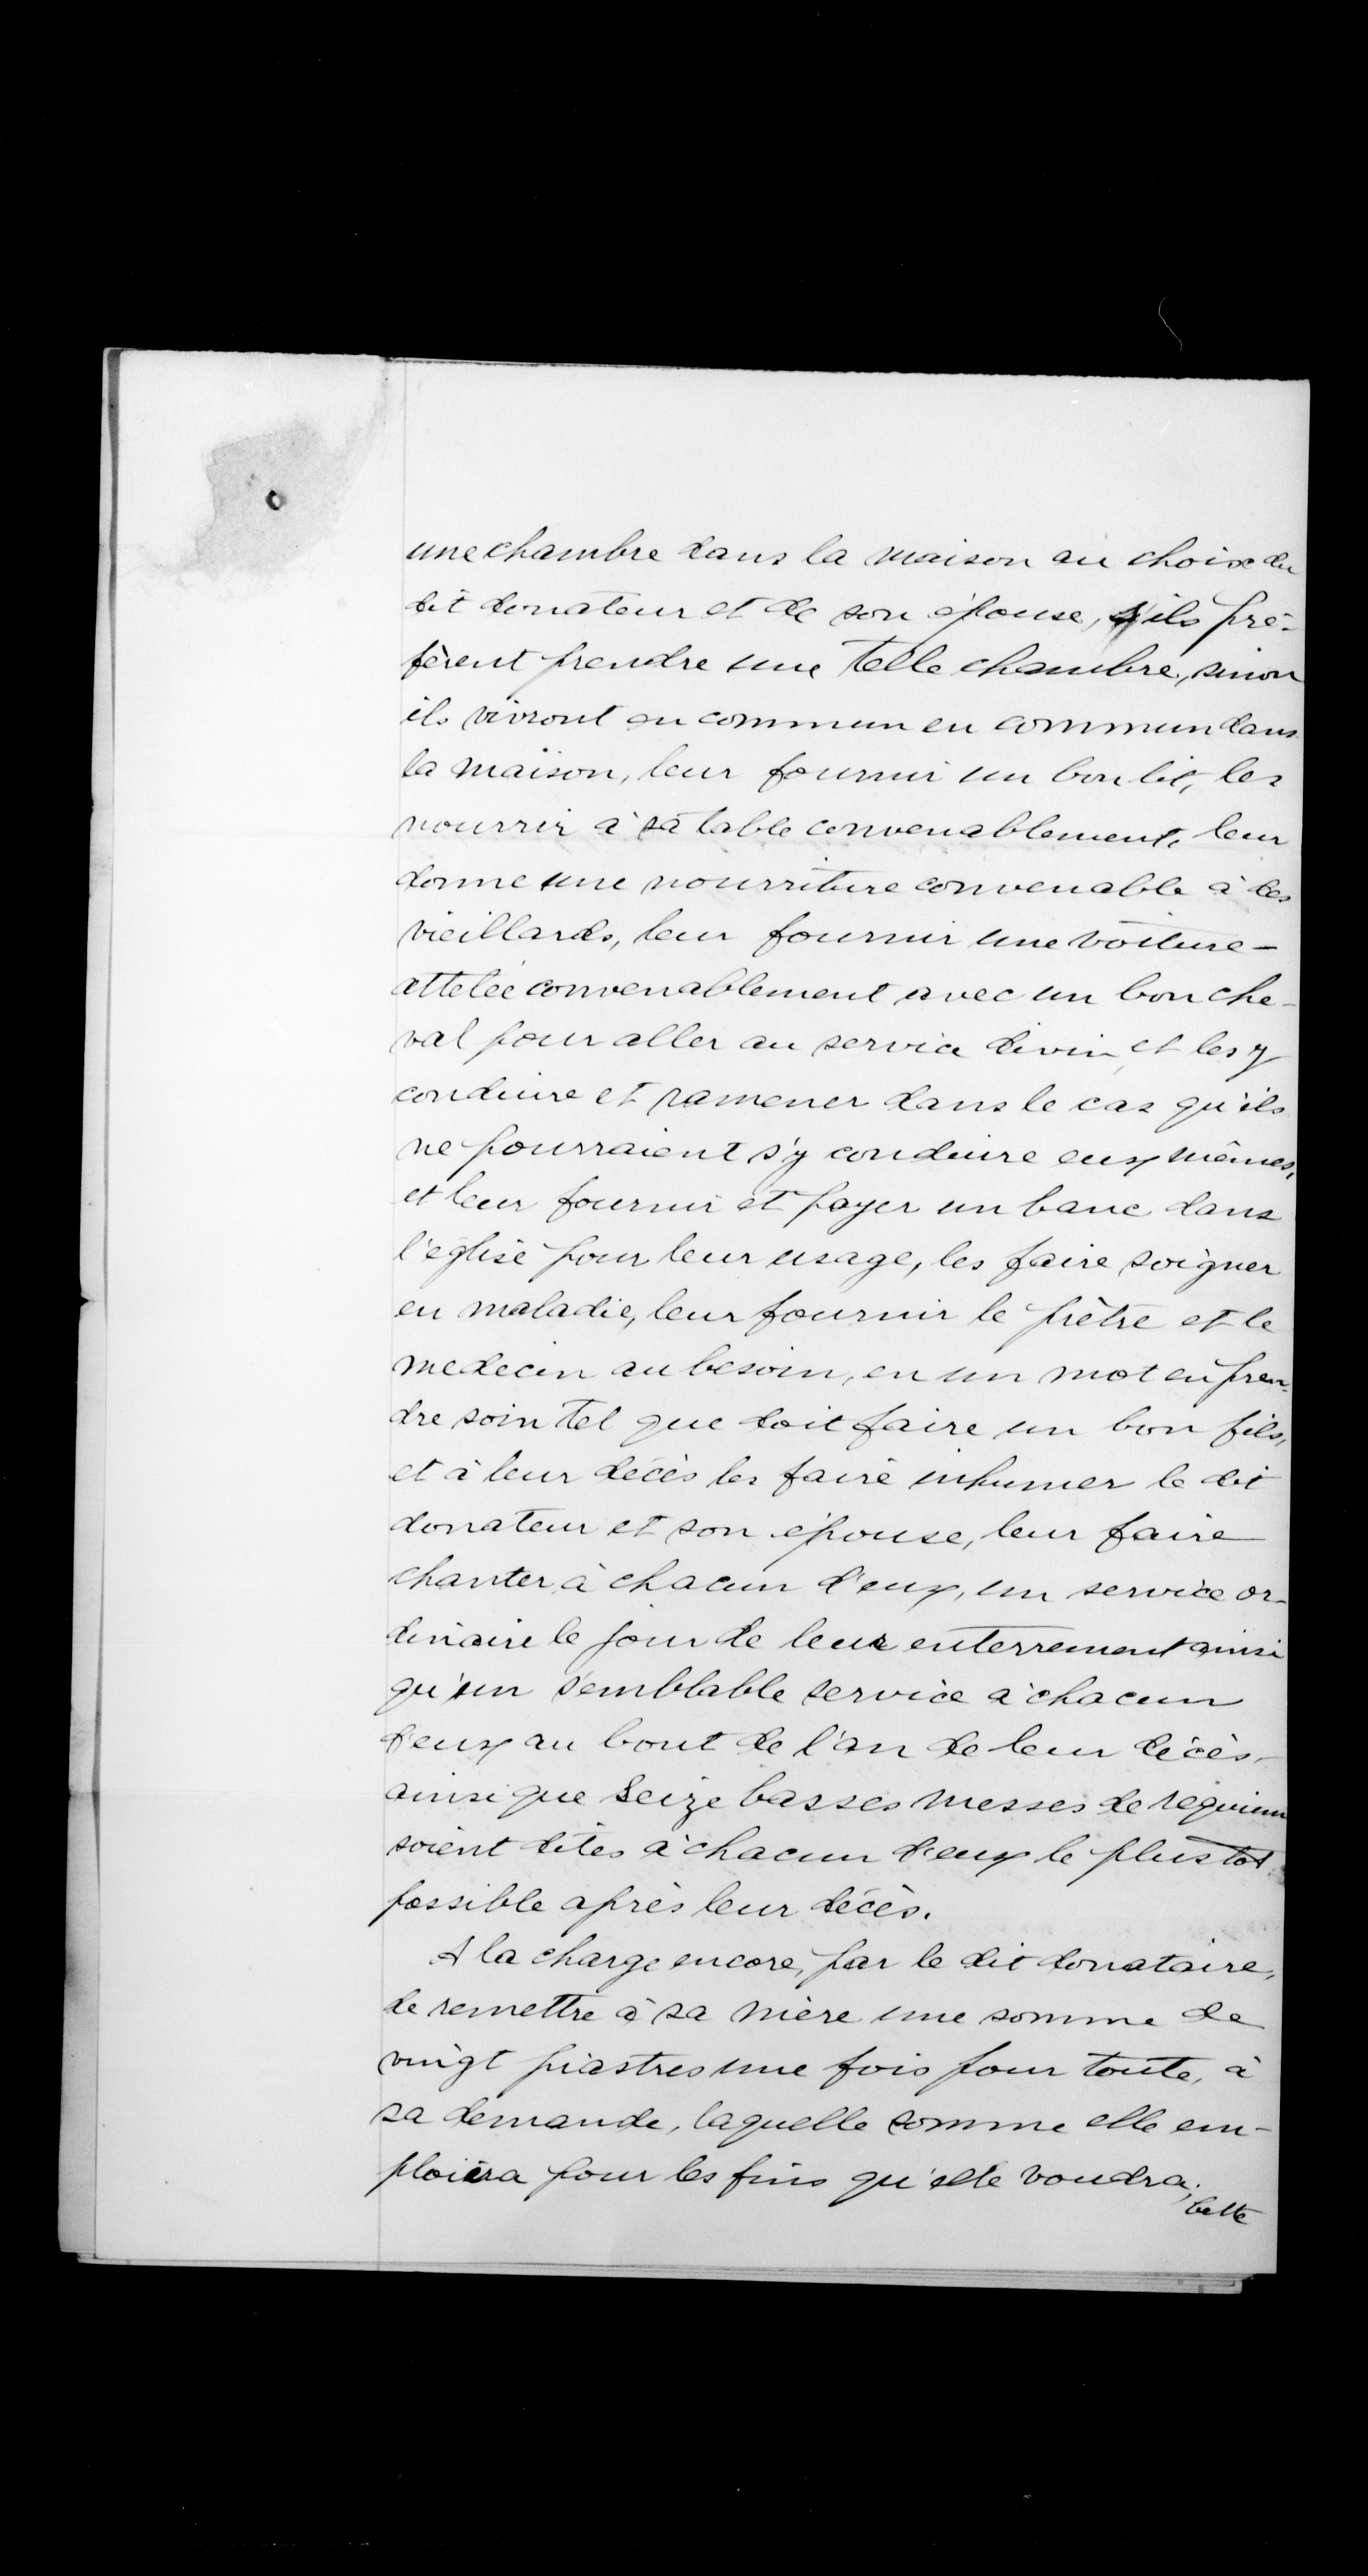 une chambre dans la maison au choix du
dit donateur et de son épouse, s'ils pré-
fèrent prendre une telle chambre, sinon
ils vivront en commun en commun dans
la maison, leur fournir un bon lit, les
nourrir à sa table convenablement, leur
donne une nourriture convenable à des
vieillards, leur fournir une voiture -
attelée convenablement avec un bon che-
val pour aller au service divin, et les y
conduire et ramener dans le cas qu'ils
ne pourraient s'y conduire eux mêmes,
et leur fournir et payer un banc dans
l'église pour leur usage, les faire soigner
en maladie, leur fournir le prêtre et le
medecin au besoin, en un mot en pren-
dre soin tel que doit faire un bon fils,
et à leur décès les faire inhumer le dit
donateur et son épouse, leur faire
chanter, à chacun d'eux, un service or-
dinaire le jour de leur enterrement ainsi
qu'un semblable service à chacun
d'eux au bout de l'an de leur décès,
ainsi que seize basses messes de requiem
soient dites à chacun d'eux le plus tot
possible après leur décès.
A la charge encore, par le dit donataire,
de remettre à sa mère une somme de
vingt piastres une fois pour toute, à
sa demande, laquelle somme elle em-
ploiera pour les fins qu'elle voudra;
cette